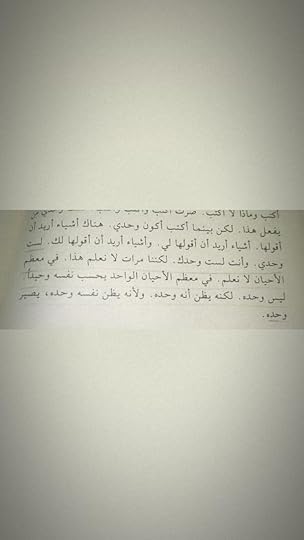 أكتب وماذا لا أكتب. صرت أكتب وأكتب
يفعل هذا. لكن بينما أكتب أكون وحدي. هناك أشياء أريد أن
أقولها. أشياء أريد أن أقولها لي. وأشياء أريد أن أقولها لك. لست
وحدي. وأنت لست وحدك. لكننا مرات لا نعلم هذا. في معظم
الأحيان لا نعلم. في معظم الأحيان الواحد يحسب نفسه وحيداً.
ليس وحده. لكنه يظن أنه وحده. ولأنه يظن نفسه وحده، يصير
وحده.